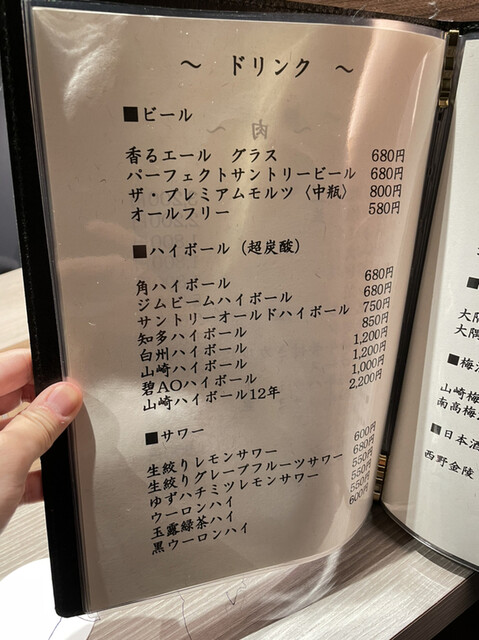 ～ ドリンク ～
■ビール
香るエール グラス 680円
パーフェクトサントリービール 680円
ザ・プレミアムモルツ〈中瓶〉 800円
オールフリー 580円
■ハイボール（超炭酸）
角ハイボール 680円
ジムビームハイボール 680円
サントリーオールドハイボール 750円
知多ハイボール 850円
白州ハイボール 1,200円
山崎ハイボール 1,200円
碧AOハイボール 1,000円
山崎ハイボール12年 2,200円
■サワー
生絞りレモンサワー 600円
生絞りグレープフルーツサワー 680円
ゆずハチミツレモンサワー 550円
ウーロンハイ 550円
玉露緑茶ハイ 550円
黒ウーロンハイ 600円
■
大隅
大隅
■梅
山崎梅
南高梅
■日本酒
西野金陵